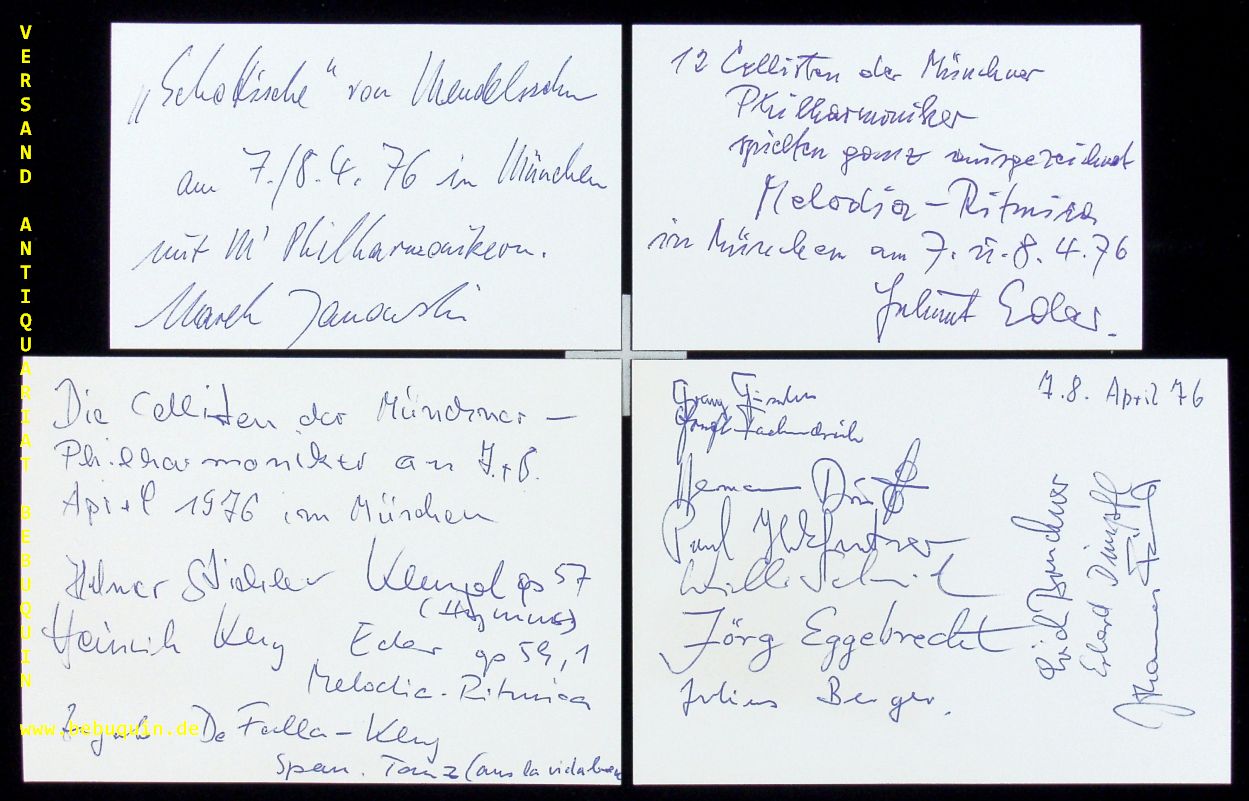 VERSAND ANTIQUARIAT BEBUQUIN
„Schottische“ von Mendelssohn
am 7./8.4.76 in München
mit M' Philharmonikern.
Marek Janowski
12 Cellisten der Münchner
Philharmoniker
spielten ganz ausgezeichnet
Melodia-Ritmica
in München am 7. u. 8.4.76
Helmut Eder.
Die Cellisten der Münchner-
Philharmoniker am 7.+8.
April 1976 in München
Helmar Stiehler Klengel op 57
(Hymnus)
Heinrich Klug Eder op 59,1
Melodia-Ritmica
De Falla-Klug
Span. Tanz (aus la vida breve
www.bebuquin.de
7.8. April 76
Franz
Herman
Paul
Willi Schmid
Jörg Eggebrecht
Julius Berger.
Erich Bruckner
Erhard Dimpfl